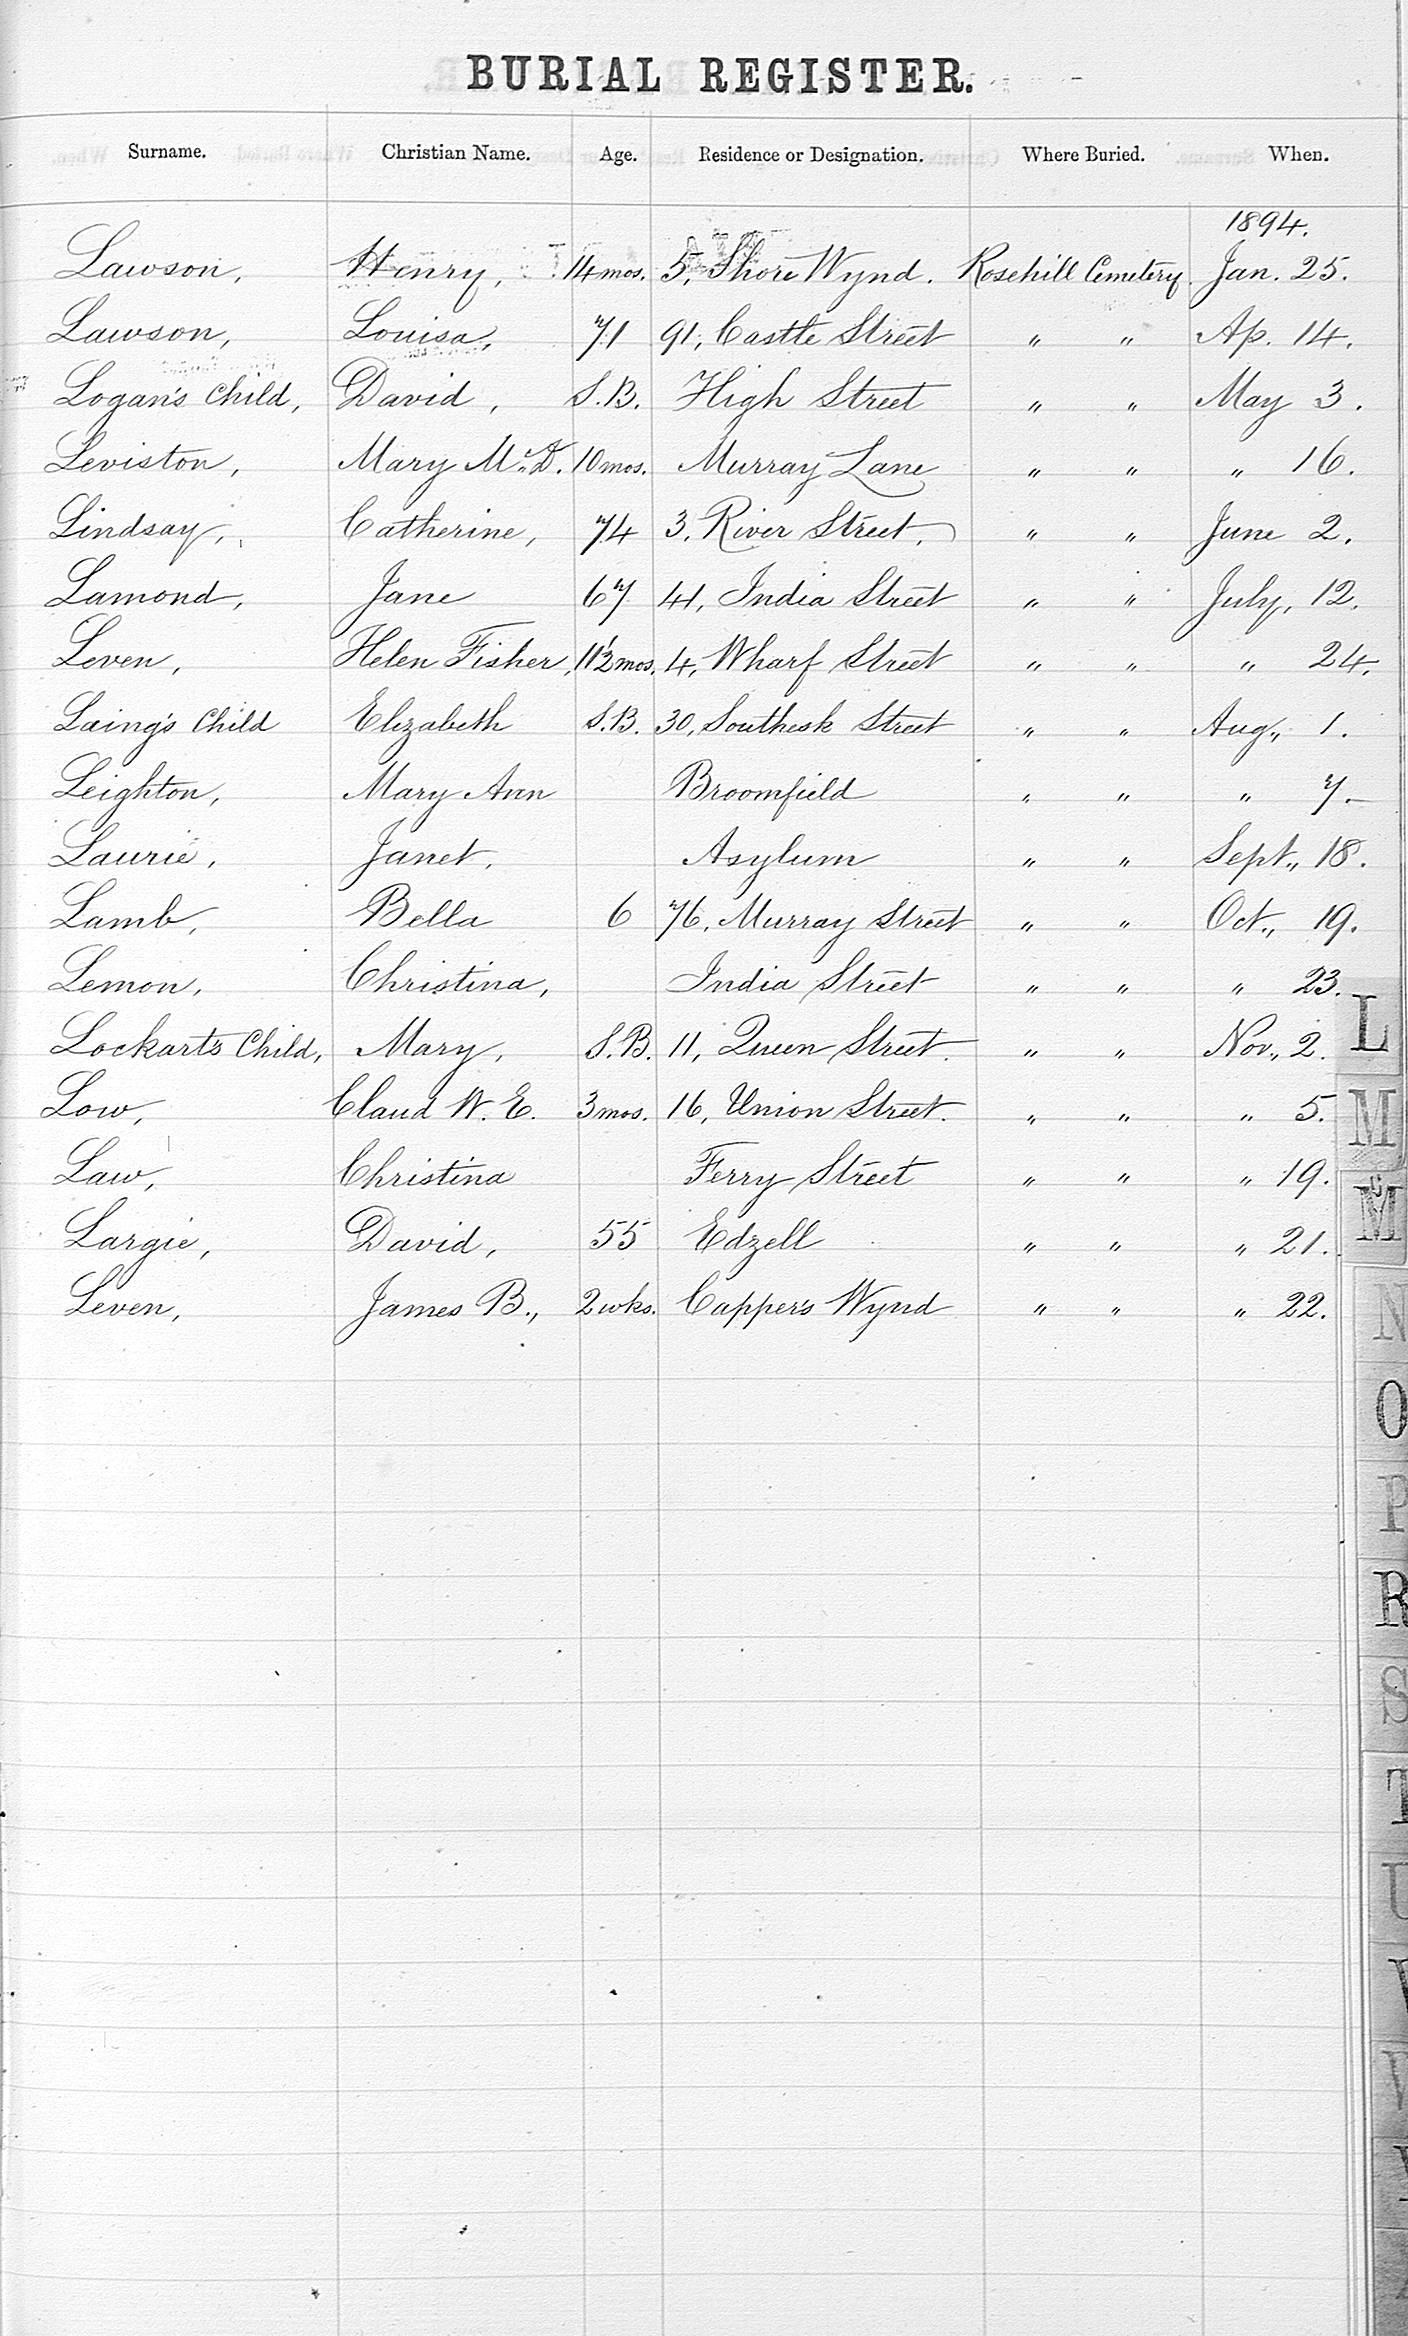 BURIAL REGISTER.
Surname. Christian Name. Age. Residence or Designation. Where Buried. When.
1894.
Lawson, Henry, 14 mos. 5, Shore Wynd. Rosehill Cemetery Jan. 25.
Lawson, Louisa, 71 91, Castle Street " " Ap. 14.
Logan's Child, David, S.B. High Street " " May 3.
Leviston, Mary McD. 10 mos. Murray Lane " " " 16.
Lindsay, Catherine, 74 3, River Street, " " June 2.
Lamond, Jane 67 41, India Street " " July, 12.
Leven, Helen Fisher, 11½ mos. 4, Wharf Street " " " 24.
Laing's Child Elizabeth S.B. 30, Southesk Street " " Aug., 1.
Leighton, Mary Ann Broomfield " " " 7.
Laurie, Janet, Asylum " " Sept., 18.
Lamb, Bella 6 76, Murray Street " " Oct., 19.
Lemon, Christina, India Street " " " 23.
Lockart's Child, Mary, S.B. 11, Queen Street. " " Nov., 2.
Low, Claud W. E. 3 mos. 16, Union Street. " " " 5.
Law, Christina Ferry Street " " " 19.
Largie, David, 55 Edzell " " " 21.
Leven, James B., 2 wks. Capper's Wynd " " " 22.
L
M
Mc
N
O
P
R
S
T
U